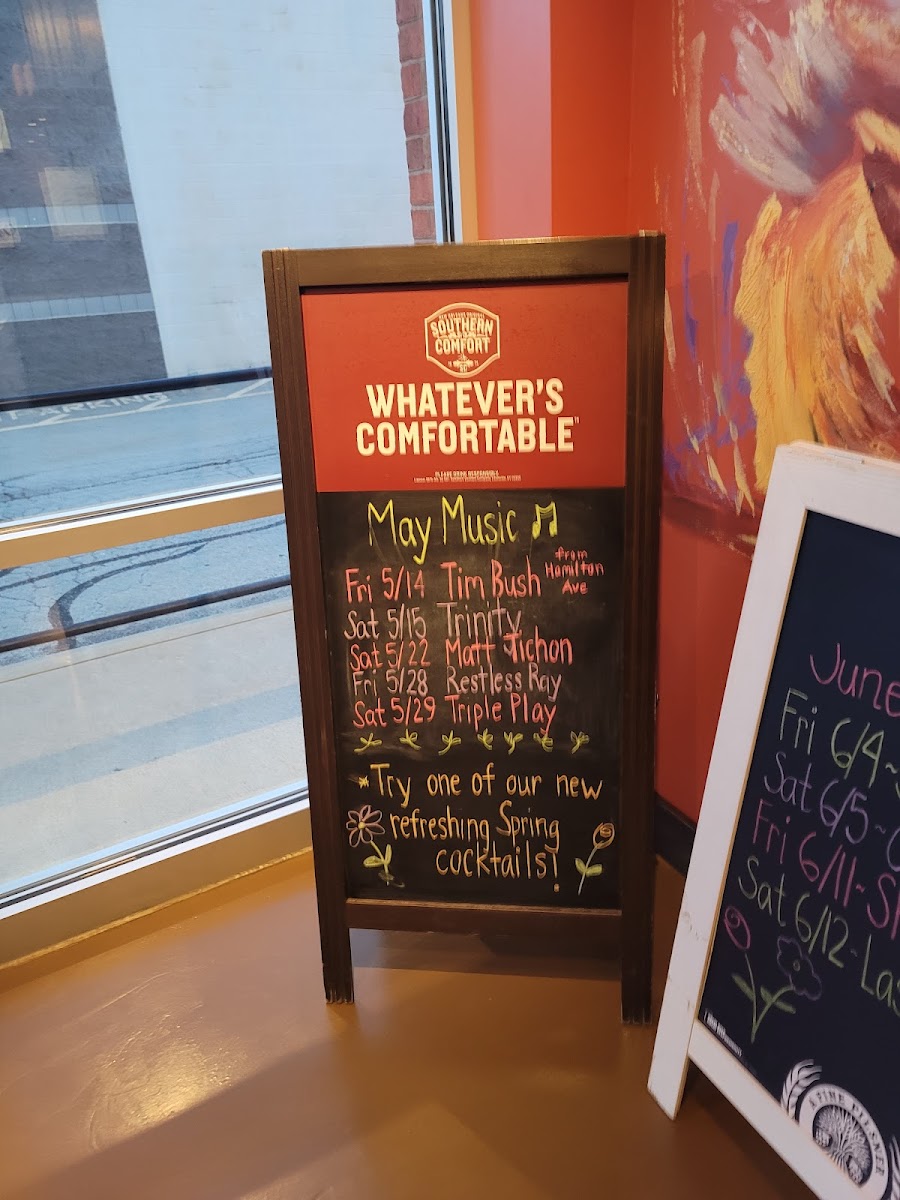 NEW ORLEANS ORIGINAL
SOUTHERN
COMFORT
WHATEVER'S
COMFORTABLE
PLEASE DRINK RESPONSIBLY
May Music
Fri 5/14 Tim Bush from Hamilton Ave
Sat 5/15 Trinity
Sat 5/22 Matt Tichon
Fri 5/28 Restless Ray
Sat 5/29 Triple Play
*Try one of our new
refreshing Spring
cocktails!
June
Fri 6/4~
Sat 6/5~
Fri 6/11~
Sat 6/12~Las
A FINE PILSNER
PARKING